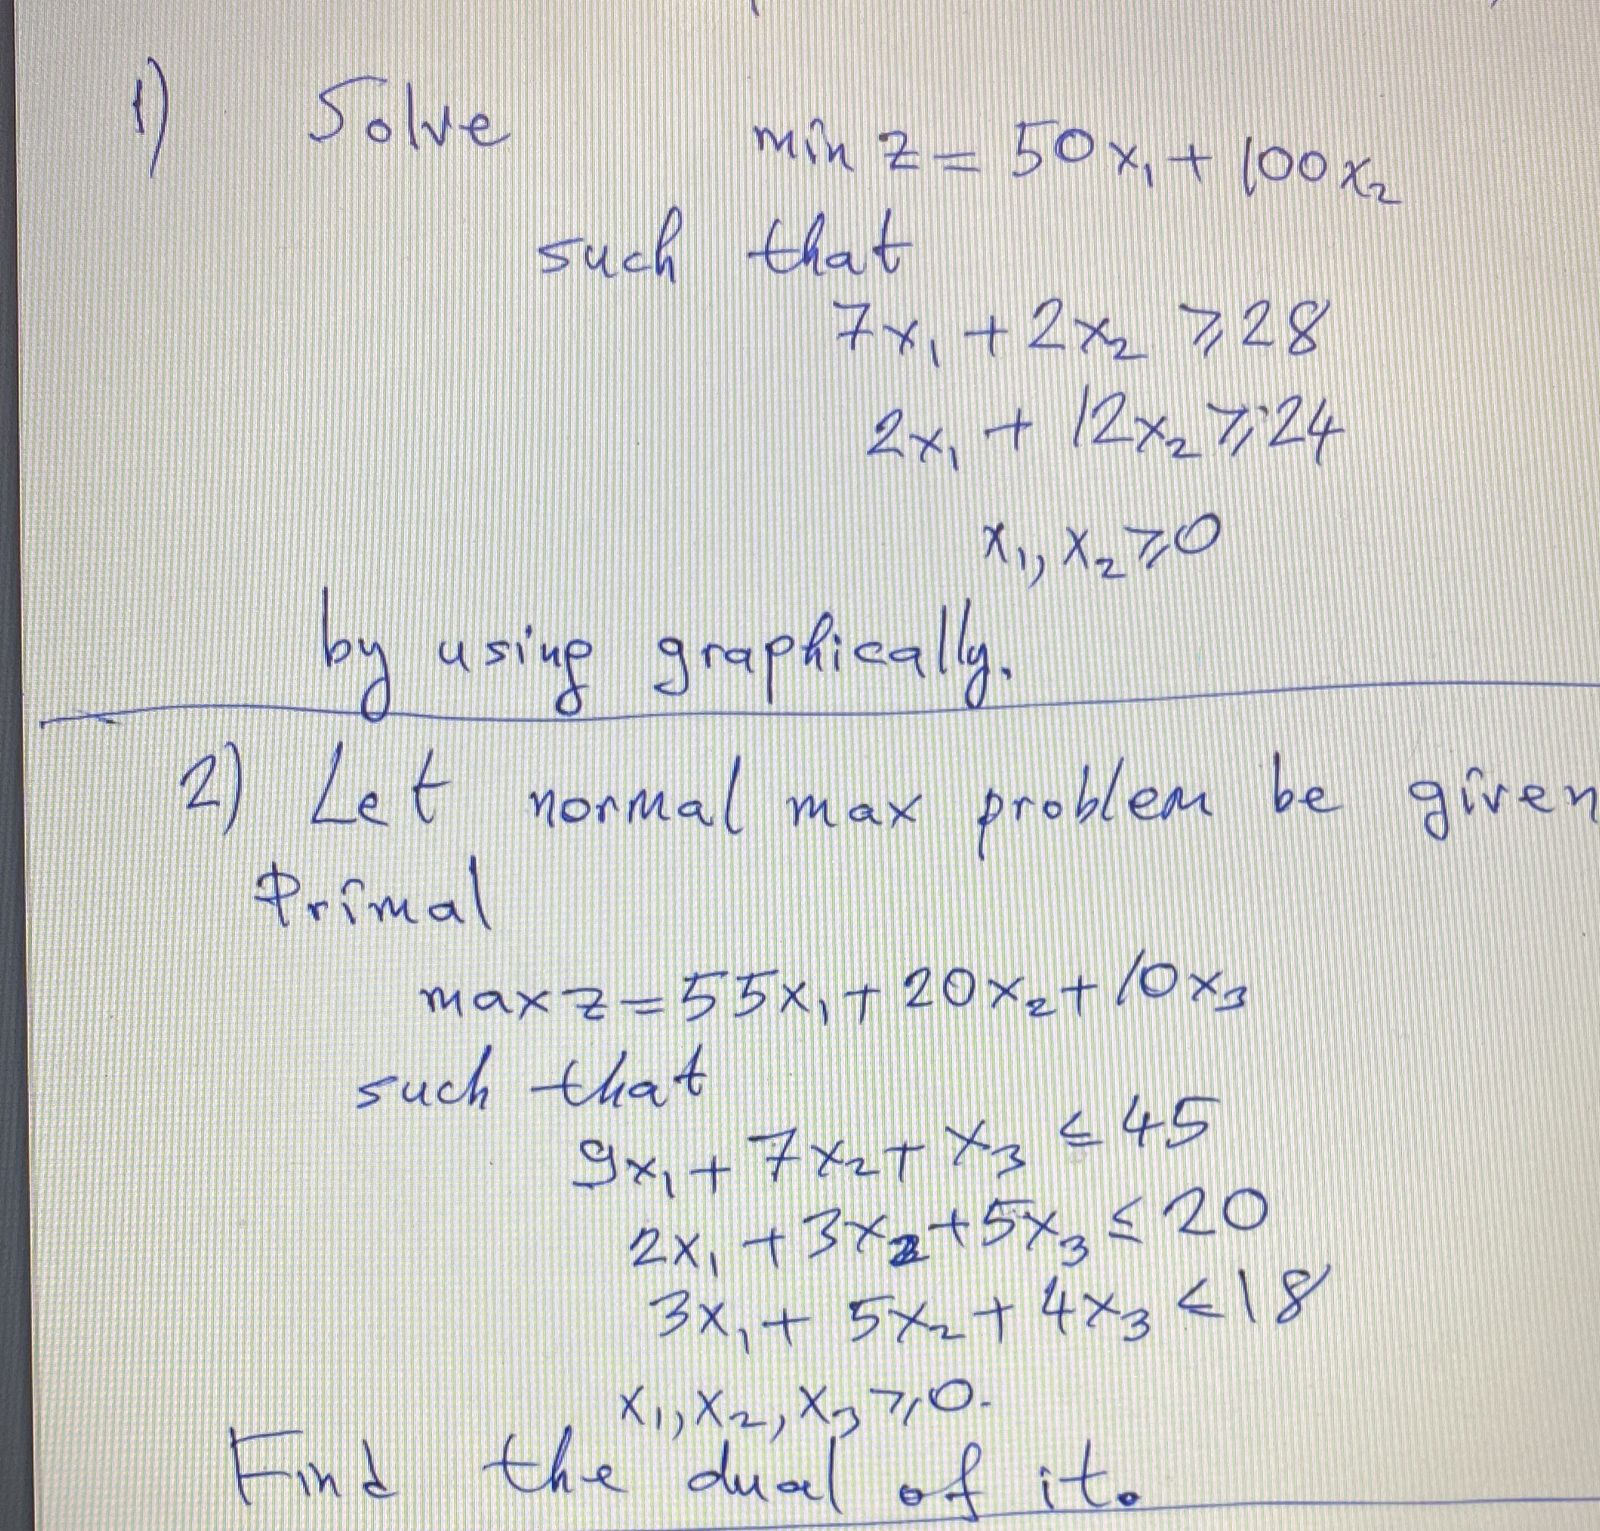 1) Solve min z = 50x₁ + 100x₂
such that
7x₁ + 2x₂ ≥ 28
2x₁ + 12x₂ ≥ 24
x₁, x₂ ≥ 0
by using graphically.
2) Let normal max problem be given
Primal
max z = 55x₁ + 20x₂ + 10x₃
such that
9x₁ + 7x₂ + x₃ ≤ 45
2x₁ + 3x₂ + 5x₃ ≤ 20
3x₁ + 5x₂ + 4x₃ ≤ 18
x₁, x₂, x₃ ≥ 0.
Find the dual of it.